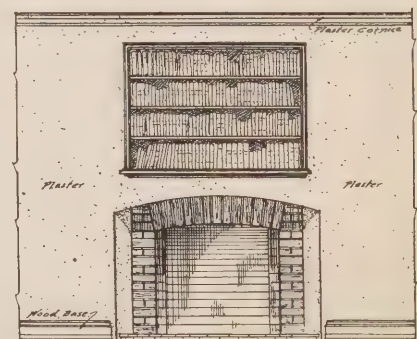 Plaster Cornice
Plaster
Plaster
Wood Base